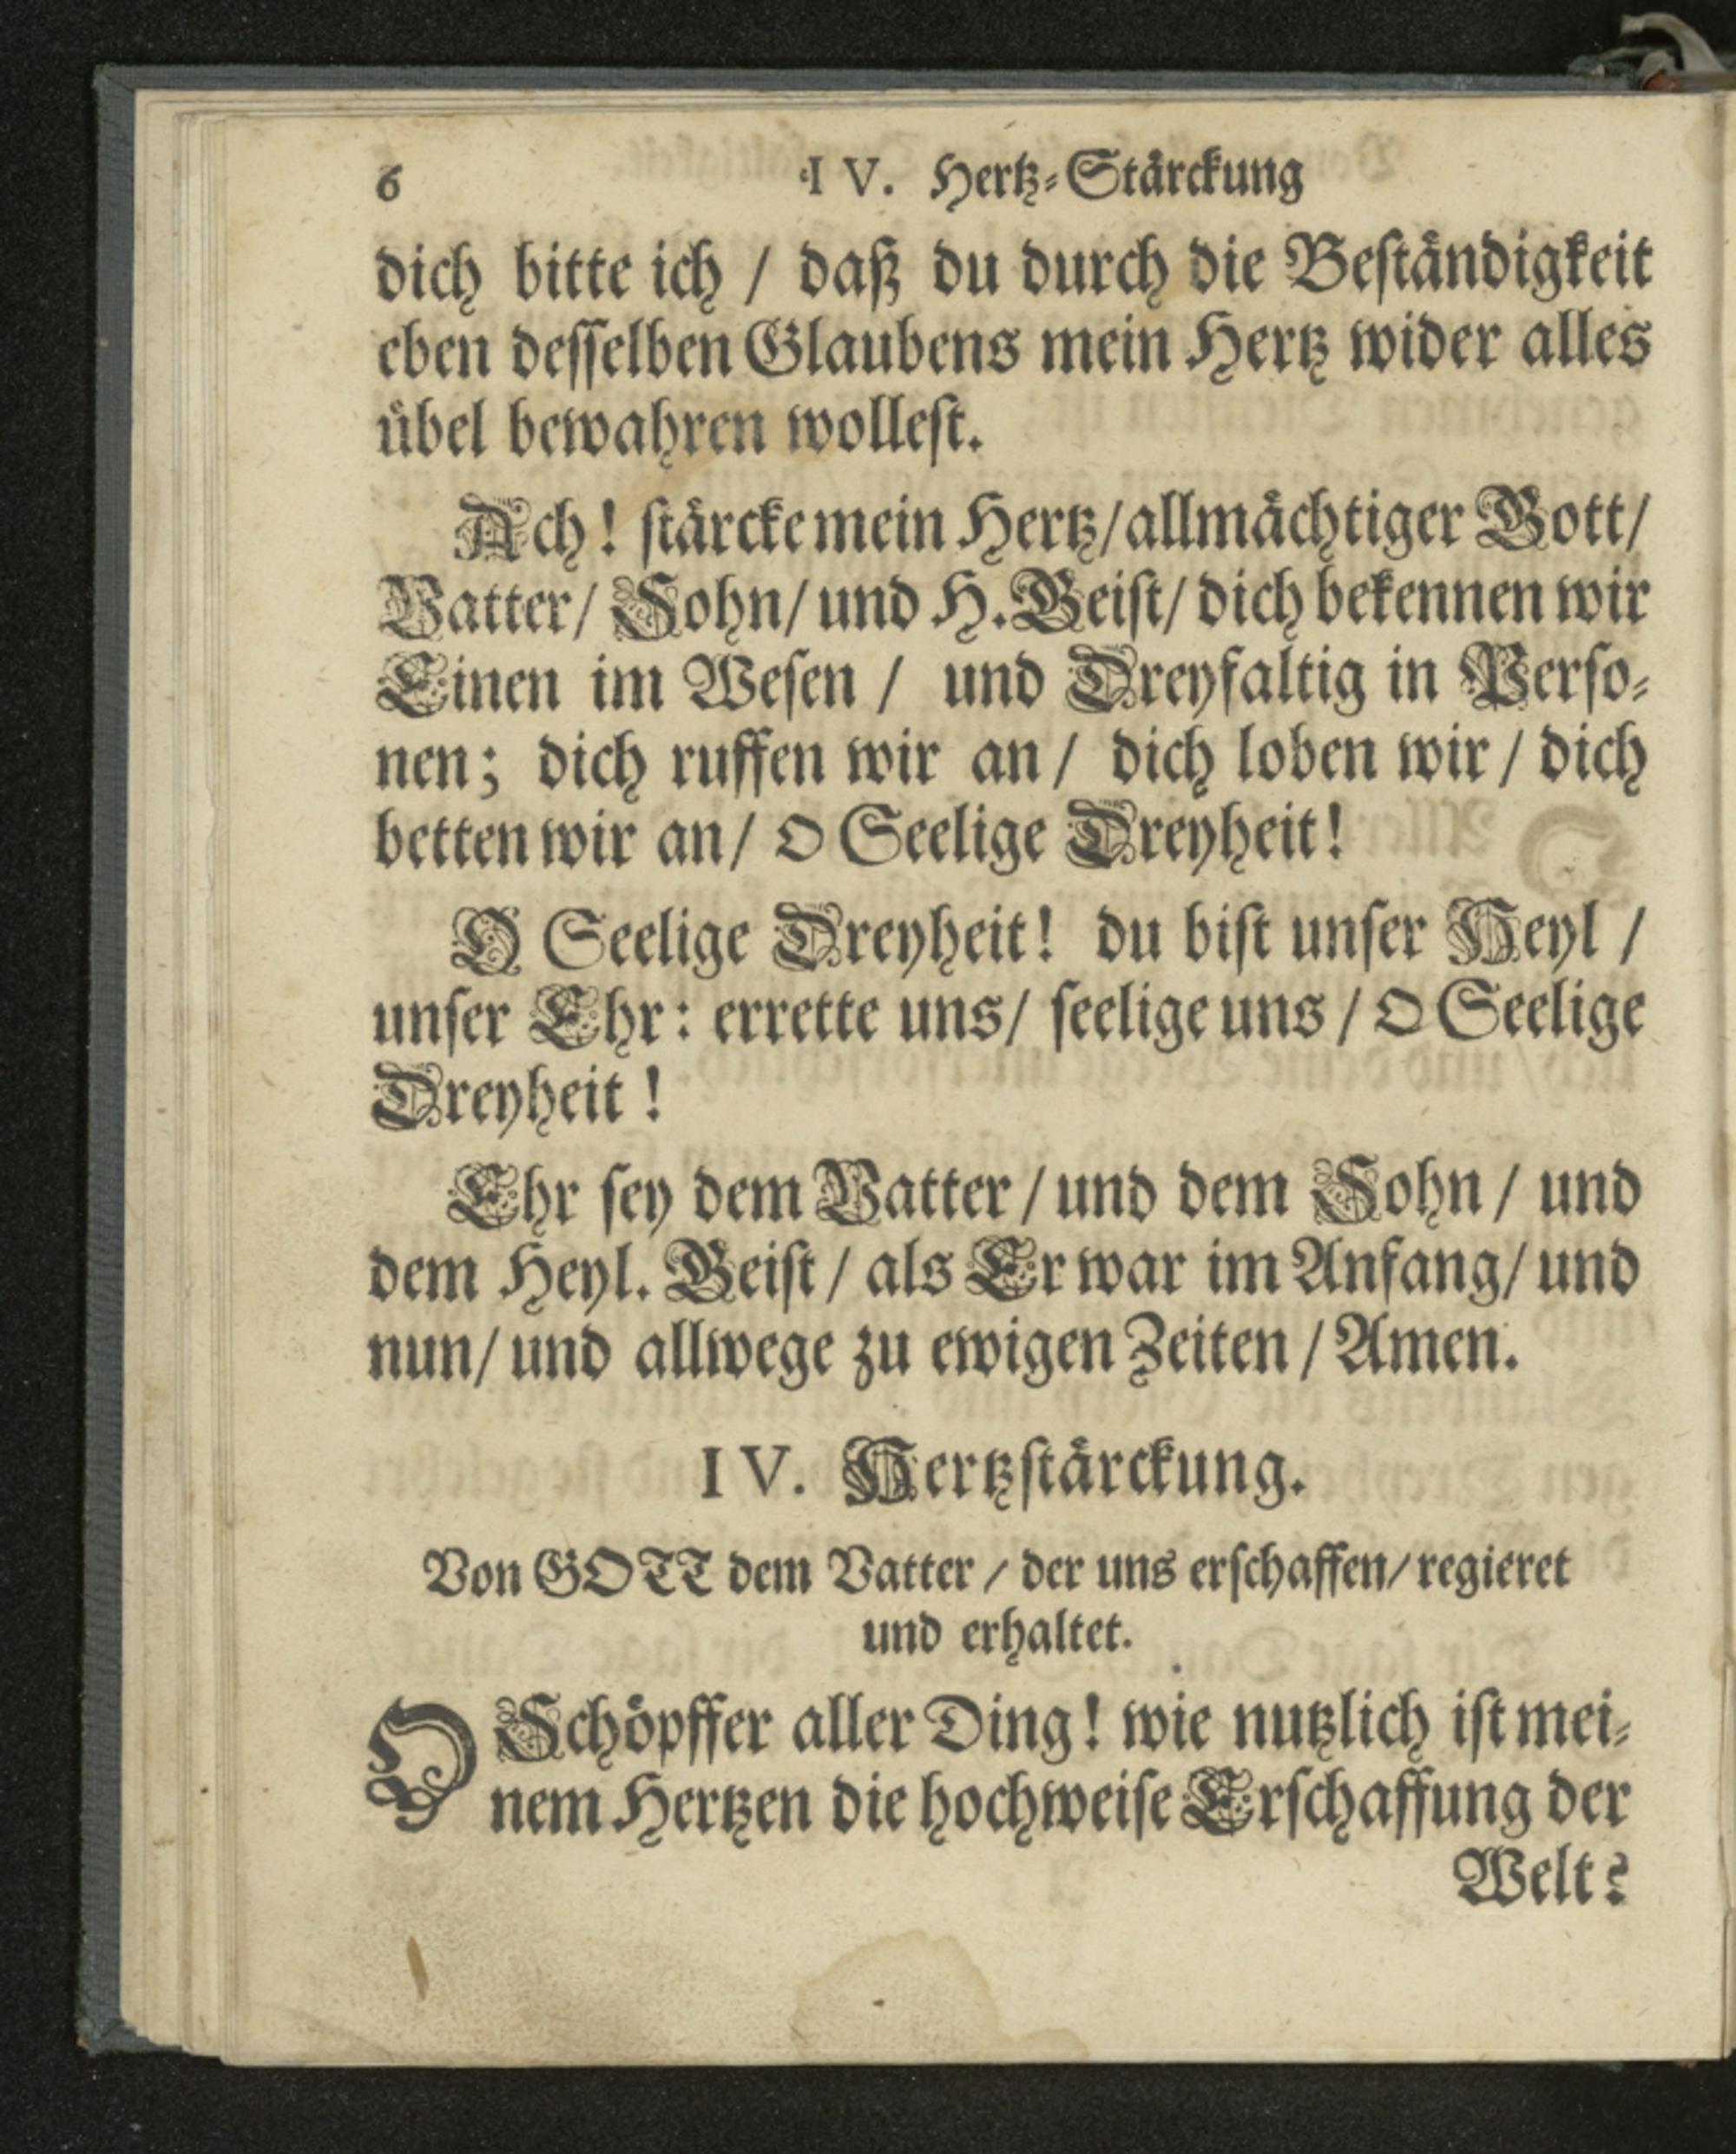 6 IV. Hertz-Stärckung
dich bitte ich / daß du durch die Beständigkeit
eben desselben Glaubens mein Hertz wider alles
übel bewahren wollest.
Ach! stärcke mein Hertz/ allmächtiger Gott/
Vatter/ Sohn/ und H. Geist/ dich bekennen wir
Einen im Wesen / und Dreyfaltig in Perso-
nen; dich ruffen wir an / dich loben wir / dich
betten wir an/ O Seelige Dreyheit!
O Seelige Dreyheit! du bist unser Heyl /
unser Ehr: errette uns/ seelige uns / O Seelige
Dreyheit!
Ehr sey dem Vatter / und dem Sohn / und
dem Heyl. Geist / als Er war im Anfang/ und
nun/ und allwege zu ewigen Zeiten / Amen.
IV. Hertzstärckung.
Von GOTT dem Vatter / der uns erschaffen/ regieret
und erhaltet.
O Schöpffer aller Ding! wie nutzlich ist mei-
nem Hertzen die hochweise Erschaffung der
Welt?